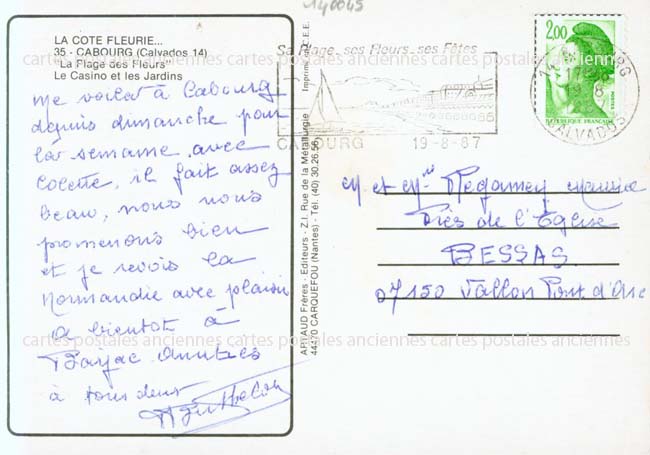 140045
LA COTE FLEURIE...
35 - CABOURG (Calvados 14)
"La Plage des Fleurs"
Le Casino et les Jardins
Me voilà à Cabourg
depuis dimanche pour
la semaine avec
Colette, il fait assez
beau, nous nous
promenons bien
et je revois la
Normandie avec plaisir
a bientôt à
Barjac. Amitiés
à tous deux
Imprimé en C.E.E.
ARTAUD Frères - Editeurs - Z.I. Rue de la Métallurgie
44470 CARQUEFOU (Nantes) - Tél. (40) 30.26.56
Sa Plage ses Fleurs ses Fêtes
CABOURG 19-8-87
14 CABOURG
17
19-8
CALVADOS
2,00
POSTES
REPUBLIQUE FRANÇAISE
M. et Mme Regamey Maurice
Près de l'Eglise
BESSAS
07150 Vallon Pont d'Arc
cartes postales anciennes cartes postales anciennes cartes postales anciennes
cartes postales anciennes cartes postales anciennes cartes postales anciennes